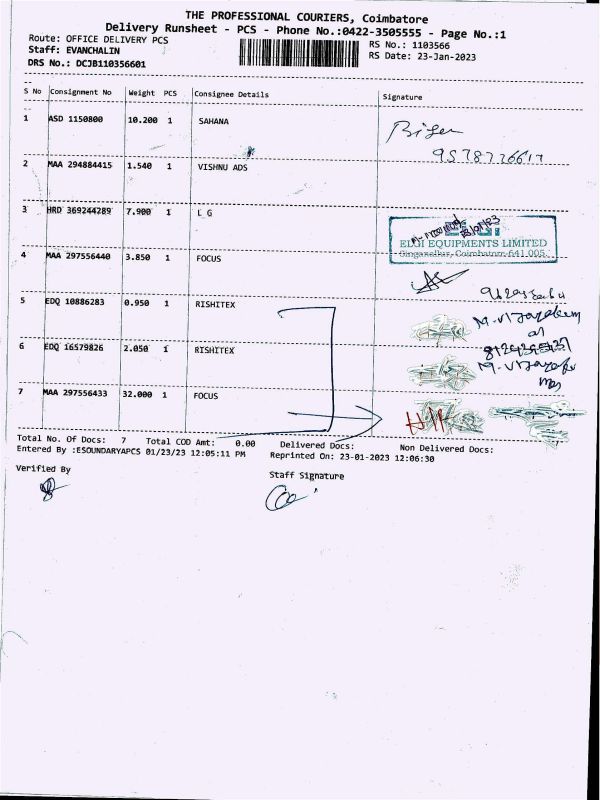 THE PROFESSIONAL COURIERS, Coimbatore
Delivery Runsheet - PCS - Phone No.:0422-3505555 - Page No.:1
Route: OFFICE DELIVERY PCS
RS No.: 1103566
Staff: EVANCHALIN
RS Date: 23-Jan-2023
DRS No.: DCJB110356601
S No Consignment No Weight PCS Consignee Details Signature
1 ASD 1150800 10.200 1 SAHANA
2 MAA 294884415 1.540 1 VISHNU ADS
3 HRD 369244289 7.900 1 L G
ELGI EQUIPMENTS LIMITED
Singanallur, Coimbatore-641 005
4 MAA 297556440 3.850 1 FOCUS
5 EDQ 10886283 0.950 1 RISHITEX
6 EDQ 16579826 2.050 1 RISHITEX
7 MAA 297556433 32.000 1 FOCUS
Total No. Of Docs: 7 Total COD Amt: 0.00 Delivered Docs: Non Delivered Docs:
Entered By :ESOUNDARYAPCS 01/23/23 12:05:11 PM Reprinted On: 23-01-2023 12:06:30
Verified By
Staff Signature